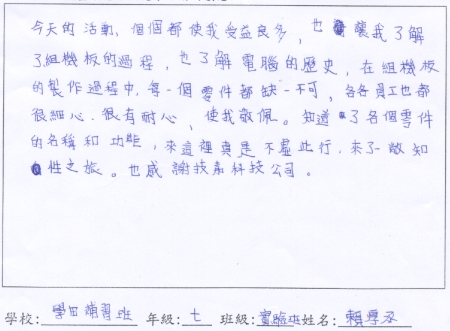 今天的活動，個個都使我受益良多，也讓我了解
了組機板的過程，也了解電腦的歷史，在組機板
的製作過程中，每一個零件都缺一不可，各各員工也都
很細心、很有耐心，使我敬佩。知道了各個零件
的名稱和功能，來這裡真是不虛此行，來了一敞知
性之旅。也感謝技嘉科技公司。
學校：學田補習班 年級：七 班級：實臨夾姓名：賴厚丞